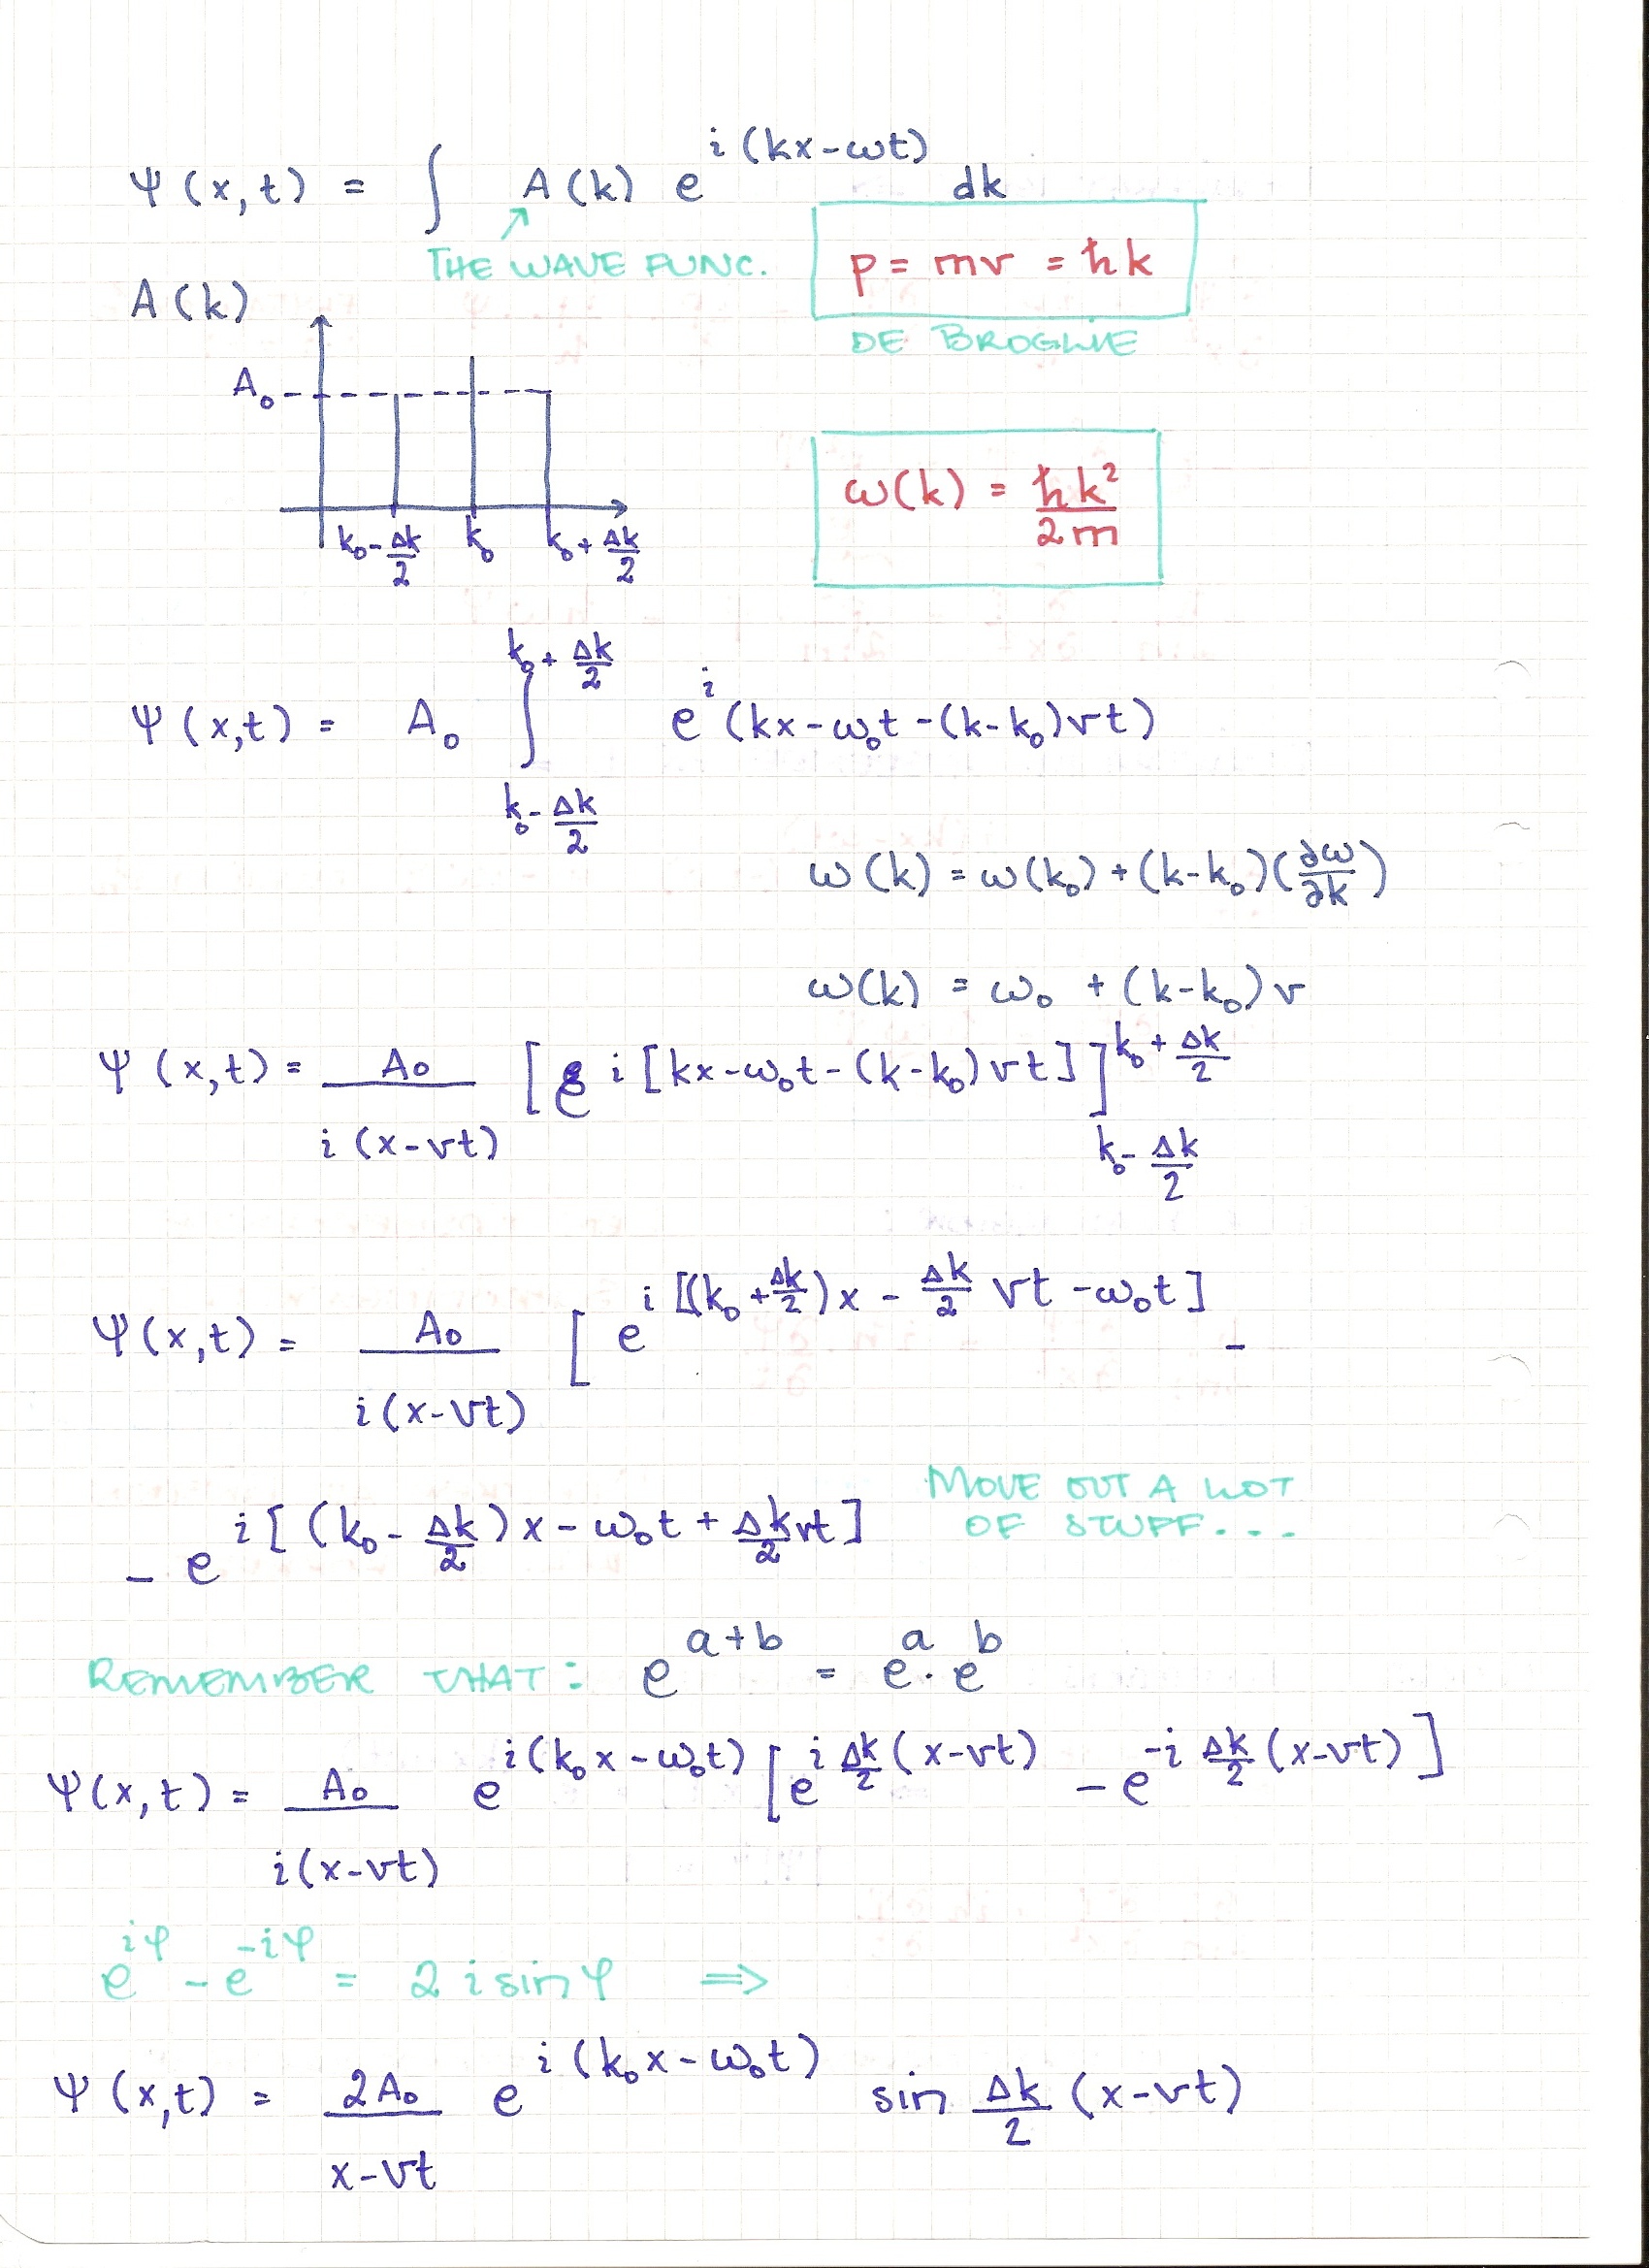 Ψ(x,t) = ∫ A(k) e^{i(kx-ωt)} dk
THE WAVE FUNC.
p = mv = ħk
DE BROGLIE
A(k)
A₀
k₀ - Δk/2   k₀   k₀ + Δk/2
ω(k) = ħk²/2m
Ψ(x,t) = A₀ ∫_{k₀ - Δk/2}^{k₀ + Δk/2} e^{i}(kx - ω₀t - (k-k₀)vt)
ω(k) = ω(k₀) + (k-k₀)(∂ω/∂k)
ω(k) = ω₀ + (k-k₀)v
Ψ(x,t) = A₀/i(x-vt) [e i[kx-ω₀t-(k-k₀)vt]]_{k₀ - Δk/2}^{k₀ + Δk/2}
Ψ(x,t) = A₀/i(x-vt) [e^{i[(k₀ + Δk/2)x - Δk/2 vt - ω₀t]} -
- e^{i[(k₀ - Δk/2)x - ω₀t + Δk/2 vt]}
MOVE OUT A LOT
OF STUFF...
REMEMBER THAT: e^{a+b} = e^a · e^b
Ψ(x,t) = A₀/i(x-vt) e^{i(k₀x - ω₀t)} [e^{i Δk/2 (x-vt)} - e^{-i Δk/2 (x-vt)}]
e^{iφ} - e^{-iφ} = 2 i sin φ ⇒
Ψ(x,t) = 2A₀/x-vt e^{i(k₀x - ω₀t)} sin Δk/2 (x-vt)